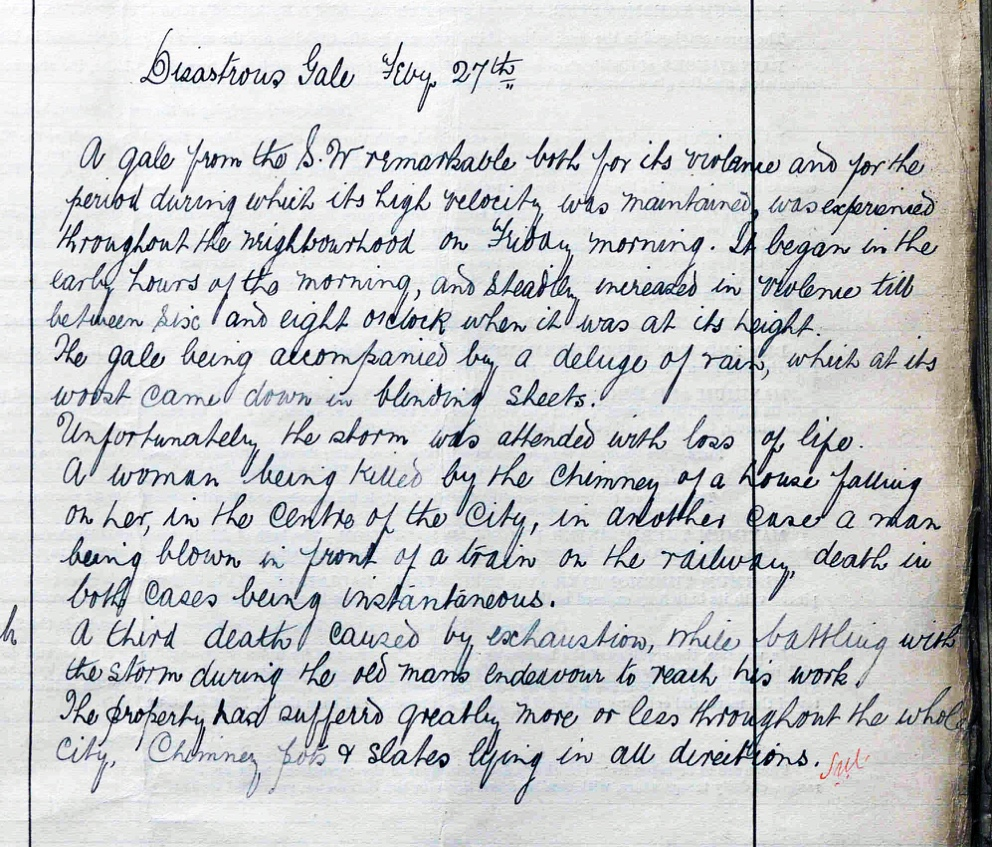 Disastrous Gale Feby 27th
A gale from the S.W remarkable both for its violence and for the
period during which its high velocity was maintained, was experienced
throughout the neighbourhood on Friday morning. It began in the
early hours of the morning, and steadily increased in violence till
between six and eight o'clock when it was at its height.
The gale being accompanied by a deluge of rain, which at its
worst came down in blinding sheets.
Unfortunately the storm was attended with loss of life.
A woman being killed by the chimney of a house falling
on her, in the centre of the City, in another case a man
being blown in front of a train on the railway, death in
both cases being instantaneous.
A third death caused by exhaustion, while battling with
the storm during the old mans endeavour to reach his work.
The property has sufferd greatly more or less throughout the whole
City, Chimney pots & slates lying in all directions.